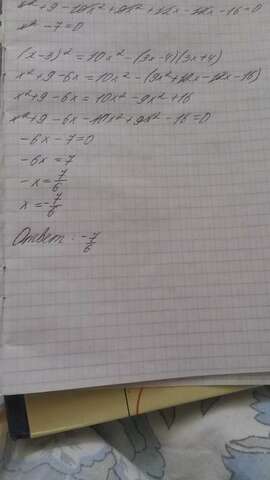 x² + 9 - 10x² + 9x² + 12x - 12x - 16 = 0
x² - 7 = 0
(x-3)² = 10x² - (3x-4)(3x+4)
x² + 9 - 6x = 10x² - (9x² + 12x - 12x - 16)
x² + 9 - 6x = 10x² - 9x² + 16
x² + 9 - 6x - 10x² + 9x² - 16 = 0
-6x - 7 = 0
-6x = 7
-x = 7/6
x = -7/6
Ответ: -7/6